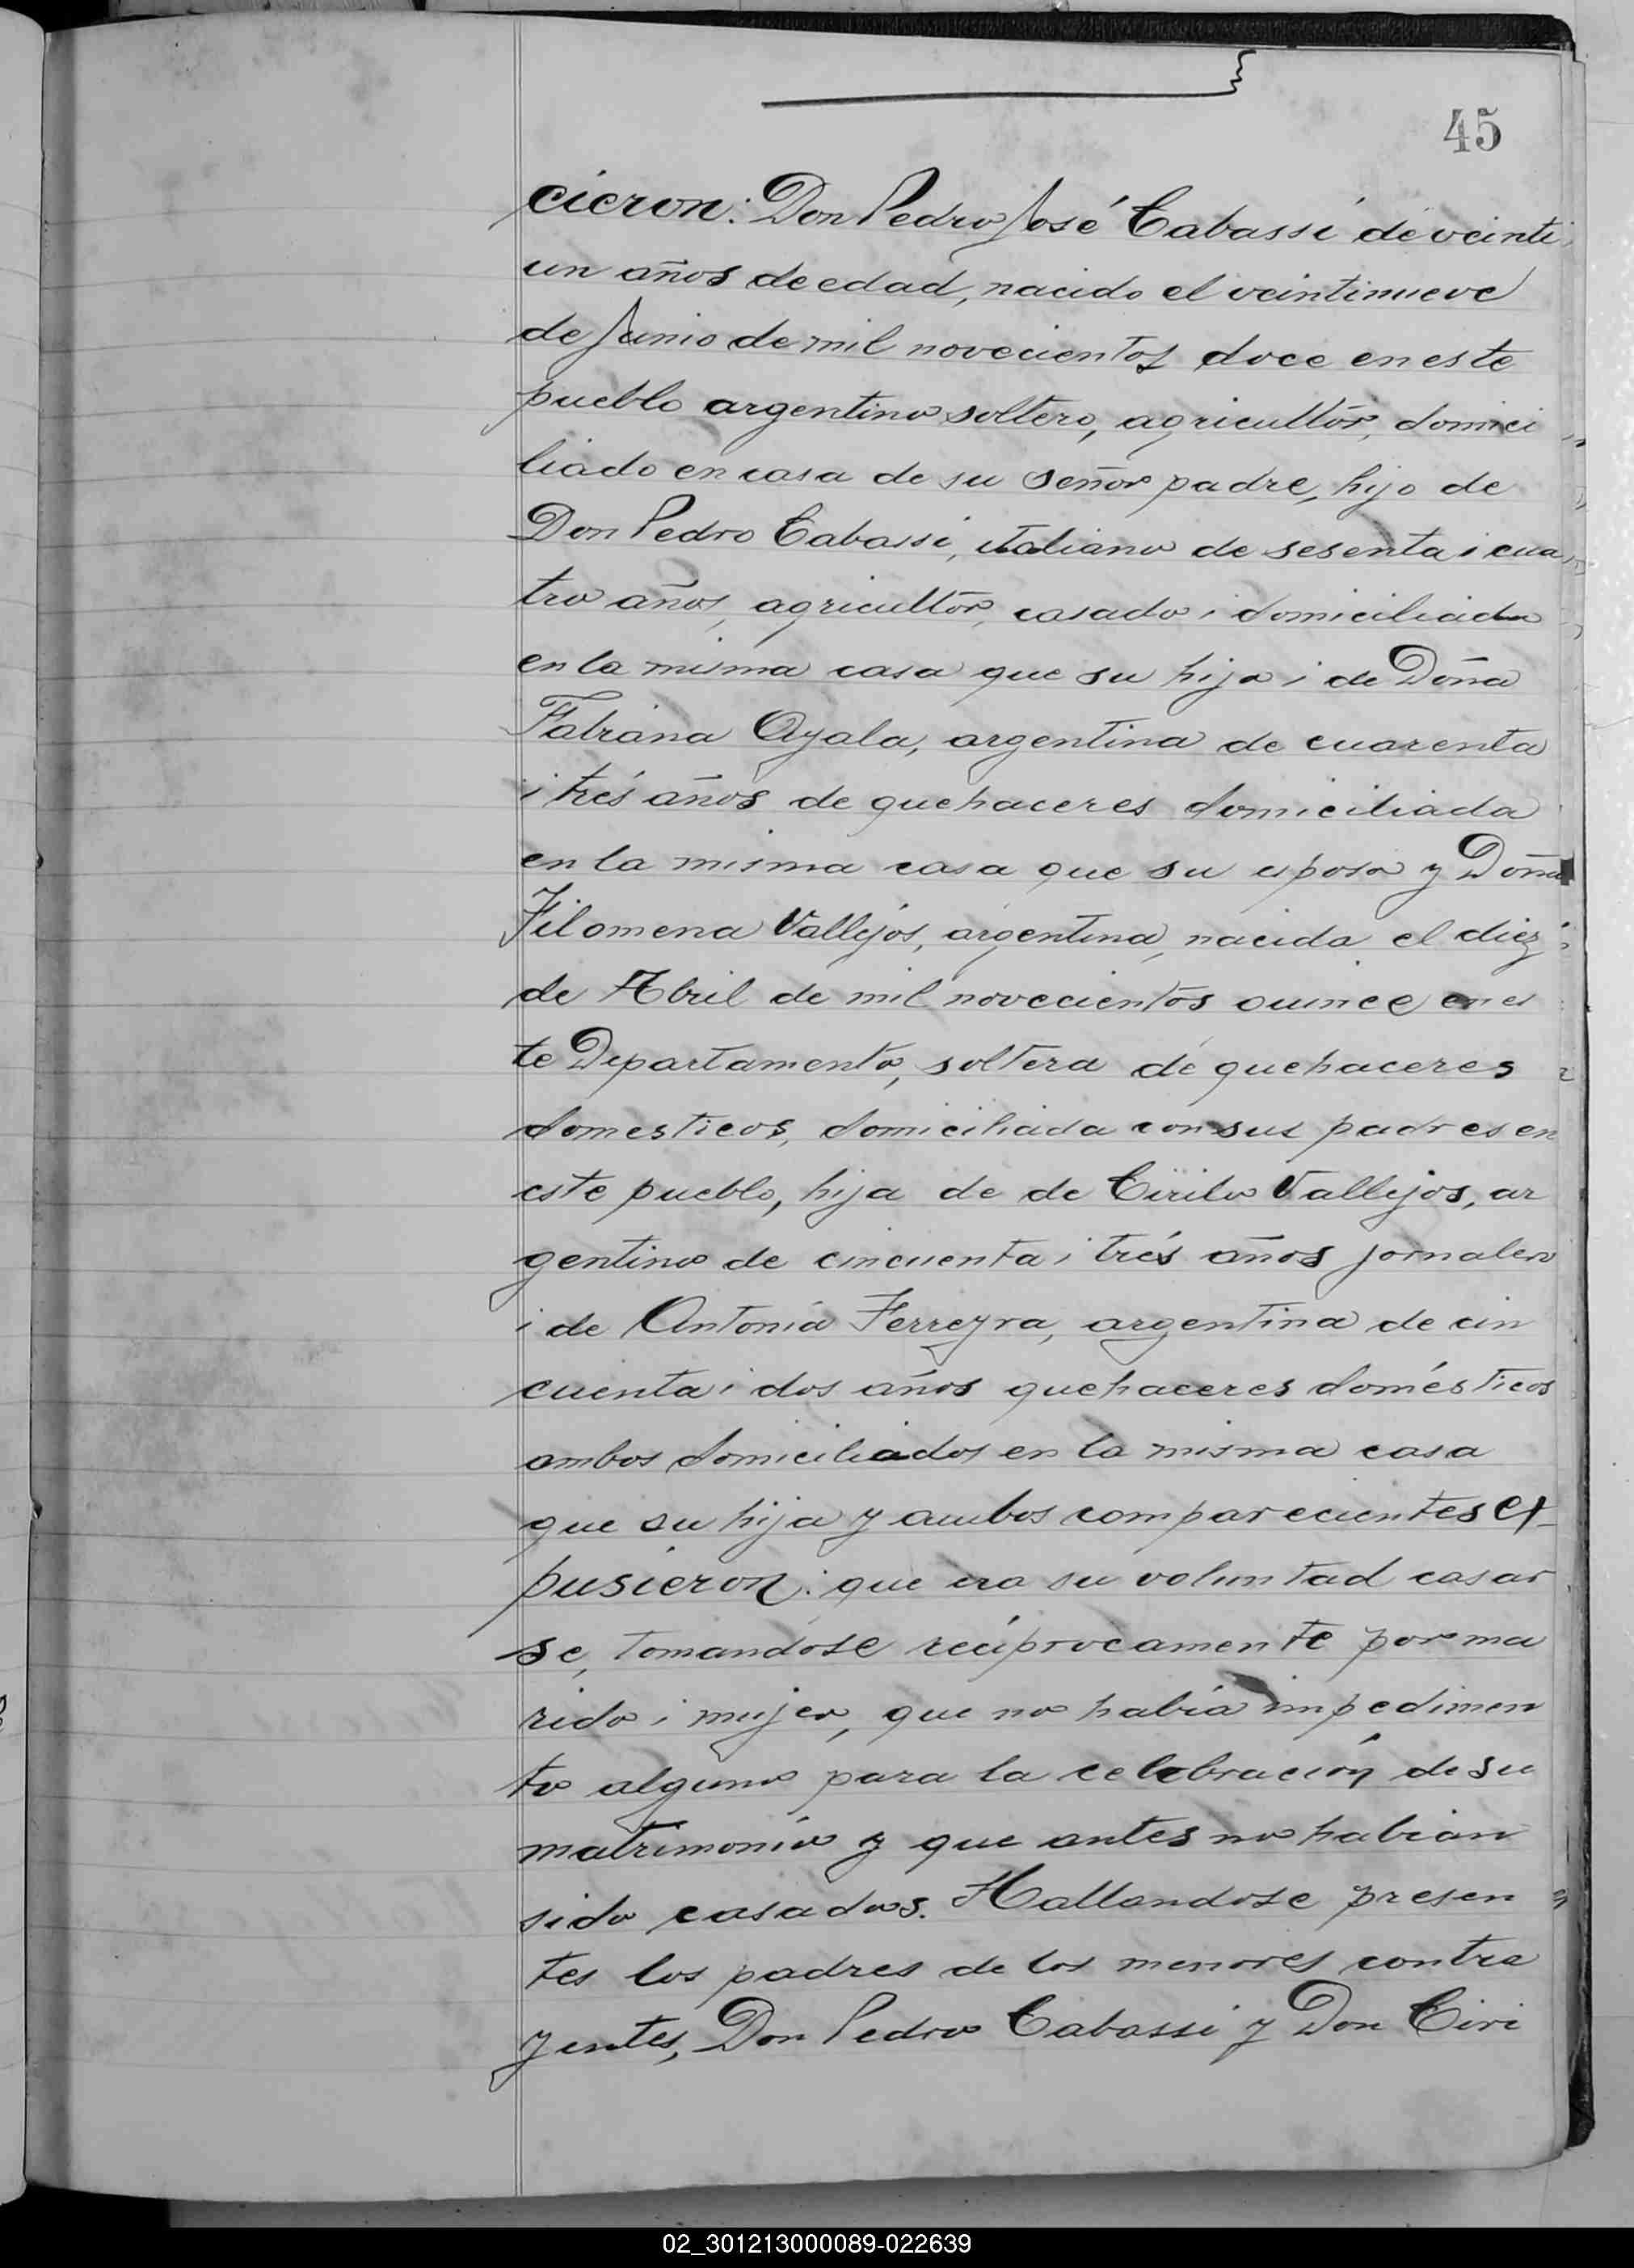 45
cieron: Don Pedro José Cabassi de veinti
un años de edad, nacido el veintinueve
de Junio de mil novecientos doce en este
pueblo argentino soltero, agricultor, domici
liado en casa de su señor padre, hijo de
Don Pedro Cabassi, italiano de sesenta i cua
tro años, agricultor, casado i domiciliado
en la misma casa que su hijo i de Doña
Fabiana Ayala, argentina de cuarenta
i trés años de quehaceres domiciliada
en la misma casa que su esposo y Doña
Filomena Vallejos, argentina, nacida el diez
de Abril de mil novecientos quince en es
te Departamento, soltera de quehaceres
domesticos, domiciliada con sus padres en
este pueblo, hija de de Cirilo Vallejos, ar
gentino de cincuenta i trés años jornalero
i de Antonia Ferreyra, argentina de cin
cuenta i dos años quehaceres domésticos
ambos domiciliados en la misma casa
que su hija y ambos comparecientes ex
pusieron: que era su voluntad casar
se, tomandose recíprocamente por ma
rido i mujer, que no había impedimen
to alguno para la celebración de su
matrimonio y que antes no habían
sido casados. Hallandose presen
tes los padres de los menores contra
yentes, Don Pedro Cabassi y Don Ciri
02_301213000089-022639